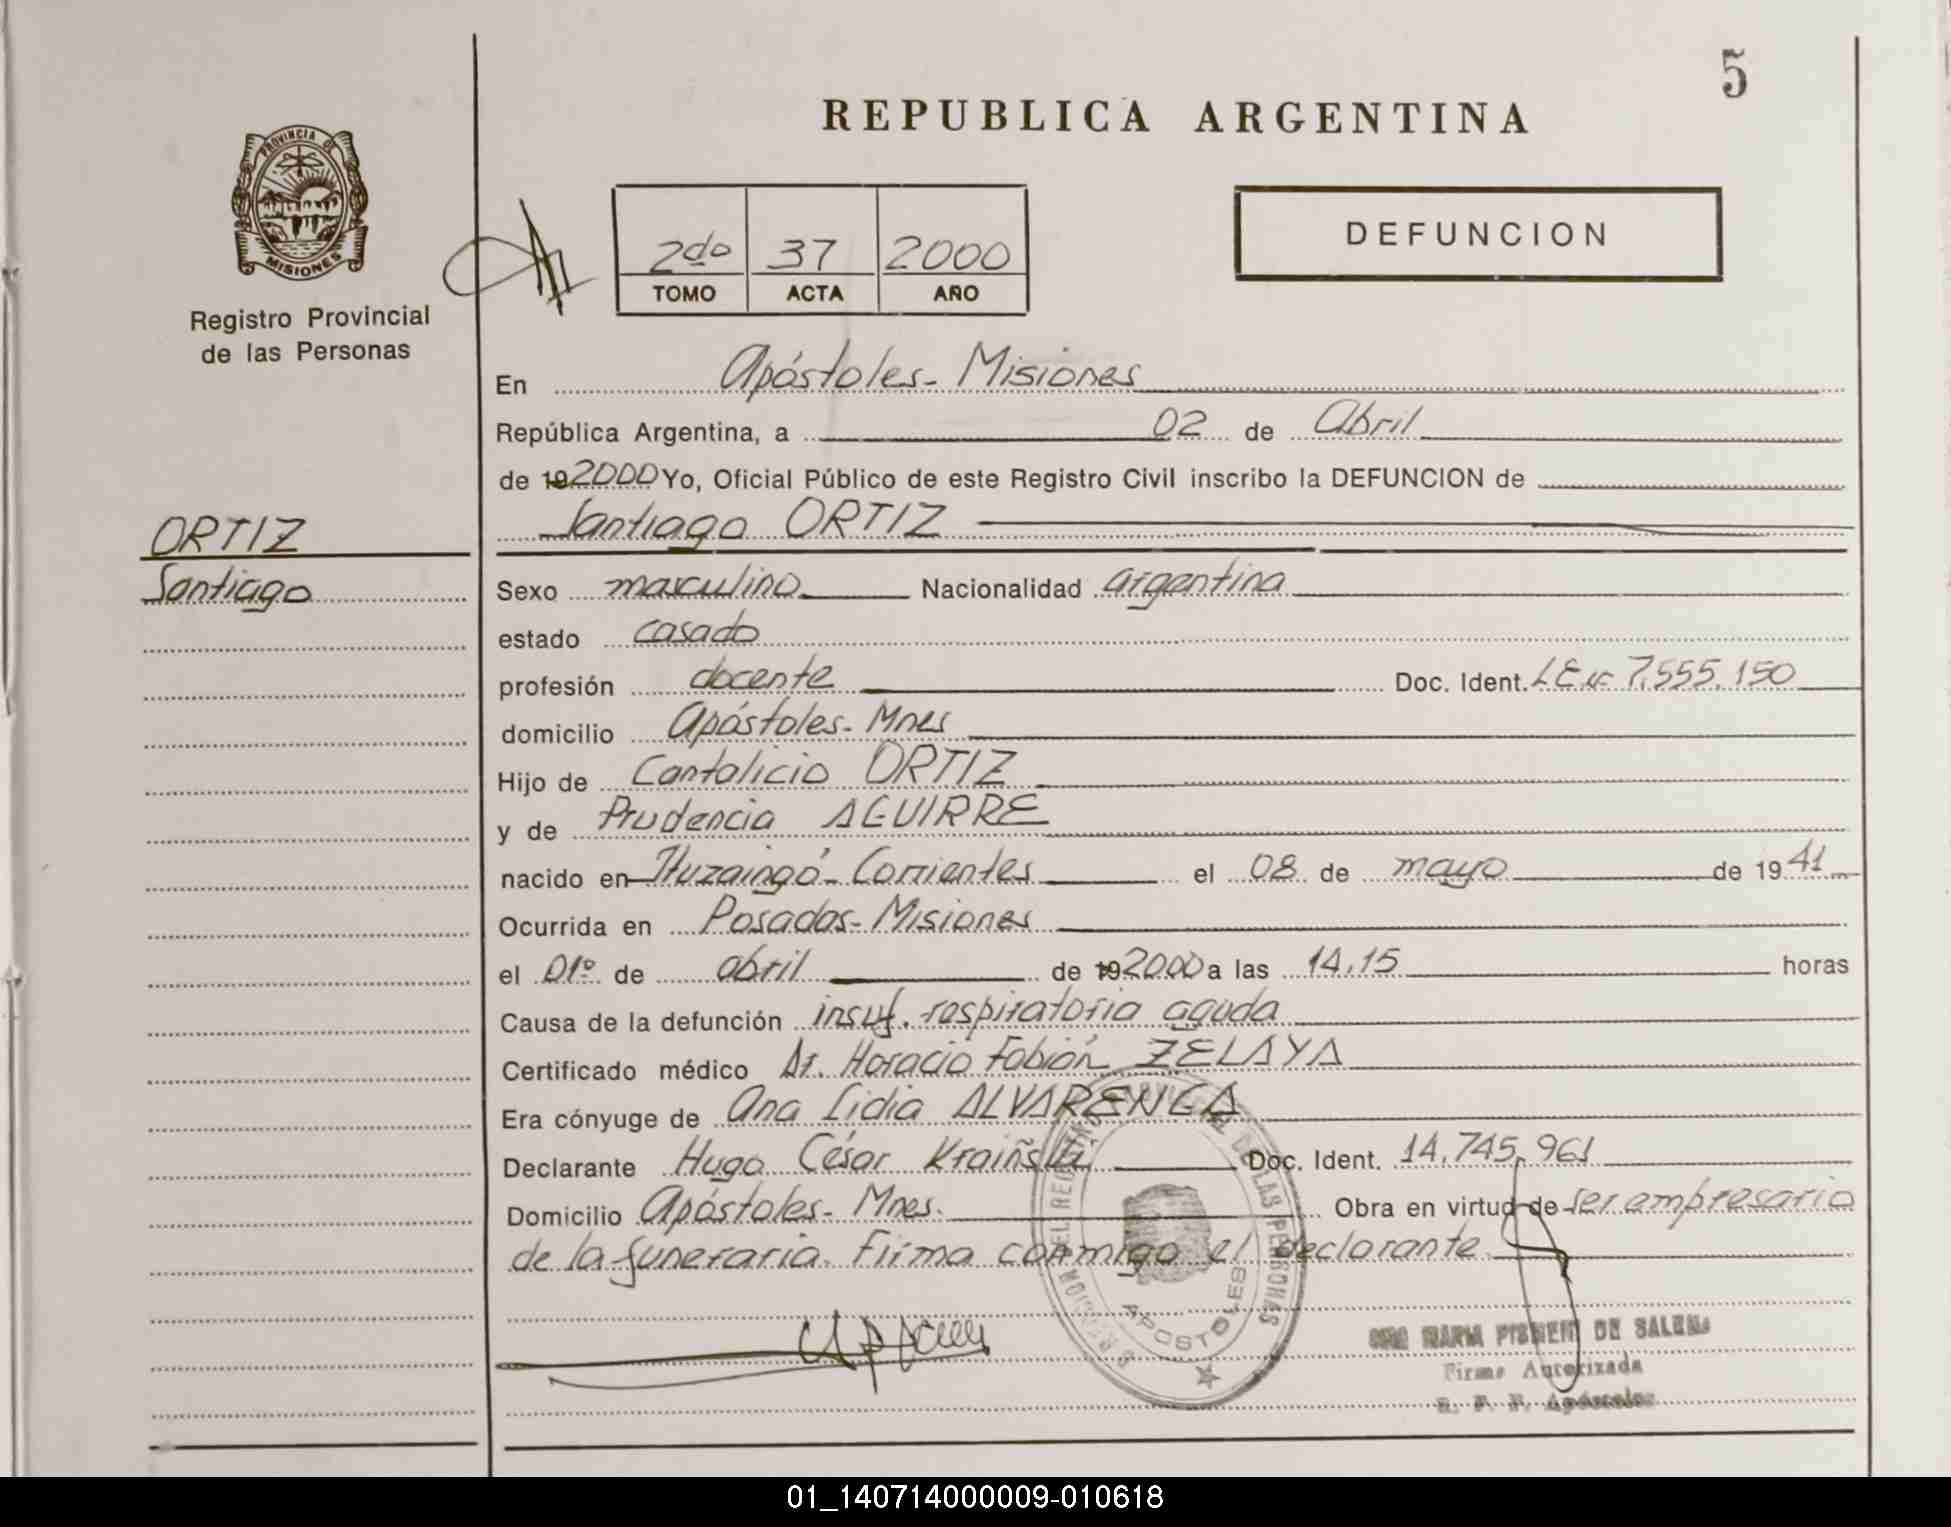 5
REPUBLICA ARGENTINA
PROVINCIA DE
MISIONES
Registro Provincial
de las Personas
2do 37 2000
TOMO ACTA AÑO
DEFUNCION
En Apóstoles - Misiones
República Argentina, a 02 de Abril
de 192000 Yo, Oficial Público de este Registro Civil inscribo la DEFUNCION de
Santiago ORTIZ
ORTIZ
Santiago
Sexo masculino Nacionalidad argentina
estado casado
profesión docente Doc. Ident. LE Nº 7.555.150
domicilio Apóstoles - Mnes
Hijo de Cantalicio ORTIZ
y de Prudencia AGUIRRE
nacido en Ituzaingó - Corrientes el 08 de mayo de 1941
Ocurrida en Posadas - Misiones
el 01º de abril de 192000 a las 14,15 horas
Causa de la defunción insuf. respiratoria aguda
Certificado médico Dr. Horacio Fabián ZELAYA
Era cónyuge de Ana Lidia ALVARENGA
Declarante Hugo César Doc. Ident. 14.745.961
Domicilio Apóstoles - Mnes. Obra en virtud de ser empresario
de la funeraria. Firma conmigo el declarante.
DE LAS PERSONAS
APOSTOLES
MARIA DE
Firma Autorizada
R. P. P. Apóstoles
01_140714000009-010618